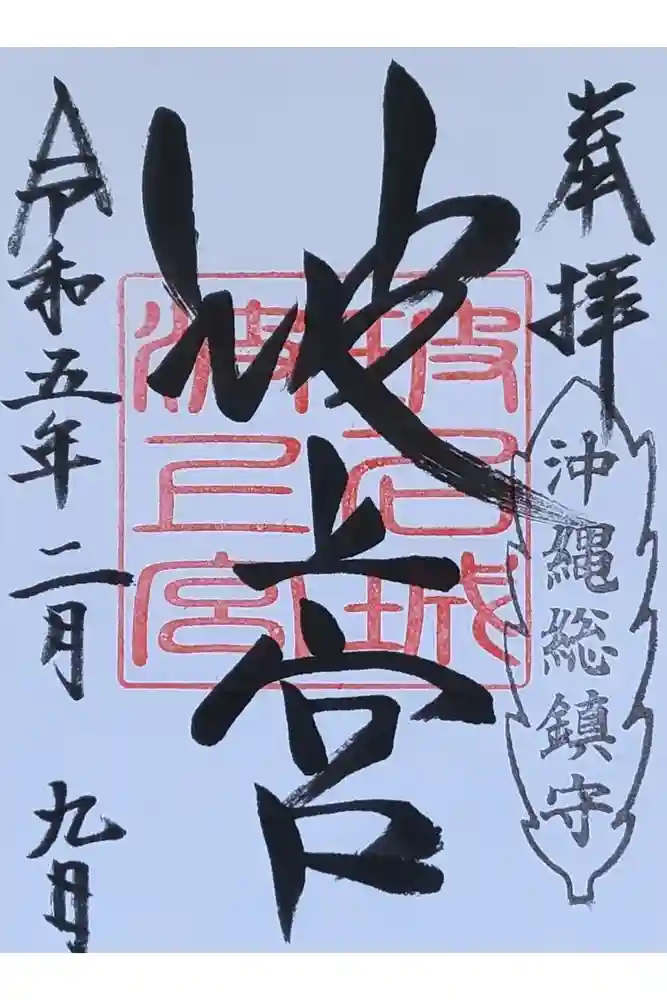 奉拝
沖縄総鎮守
波上宮
坡名城
波上宮
令和五年二月九日